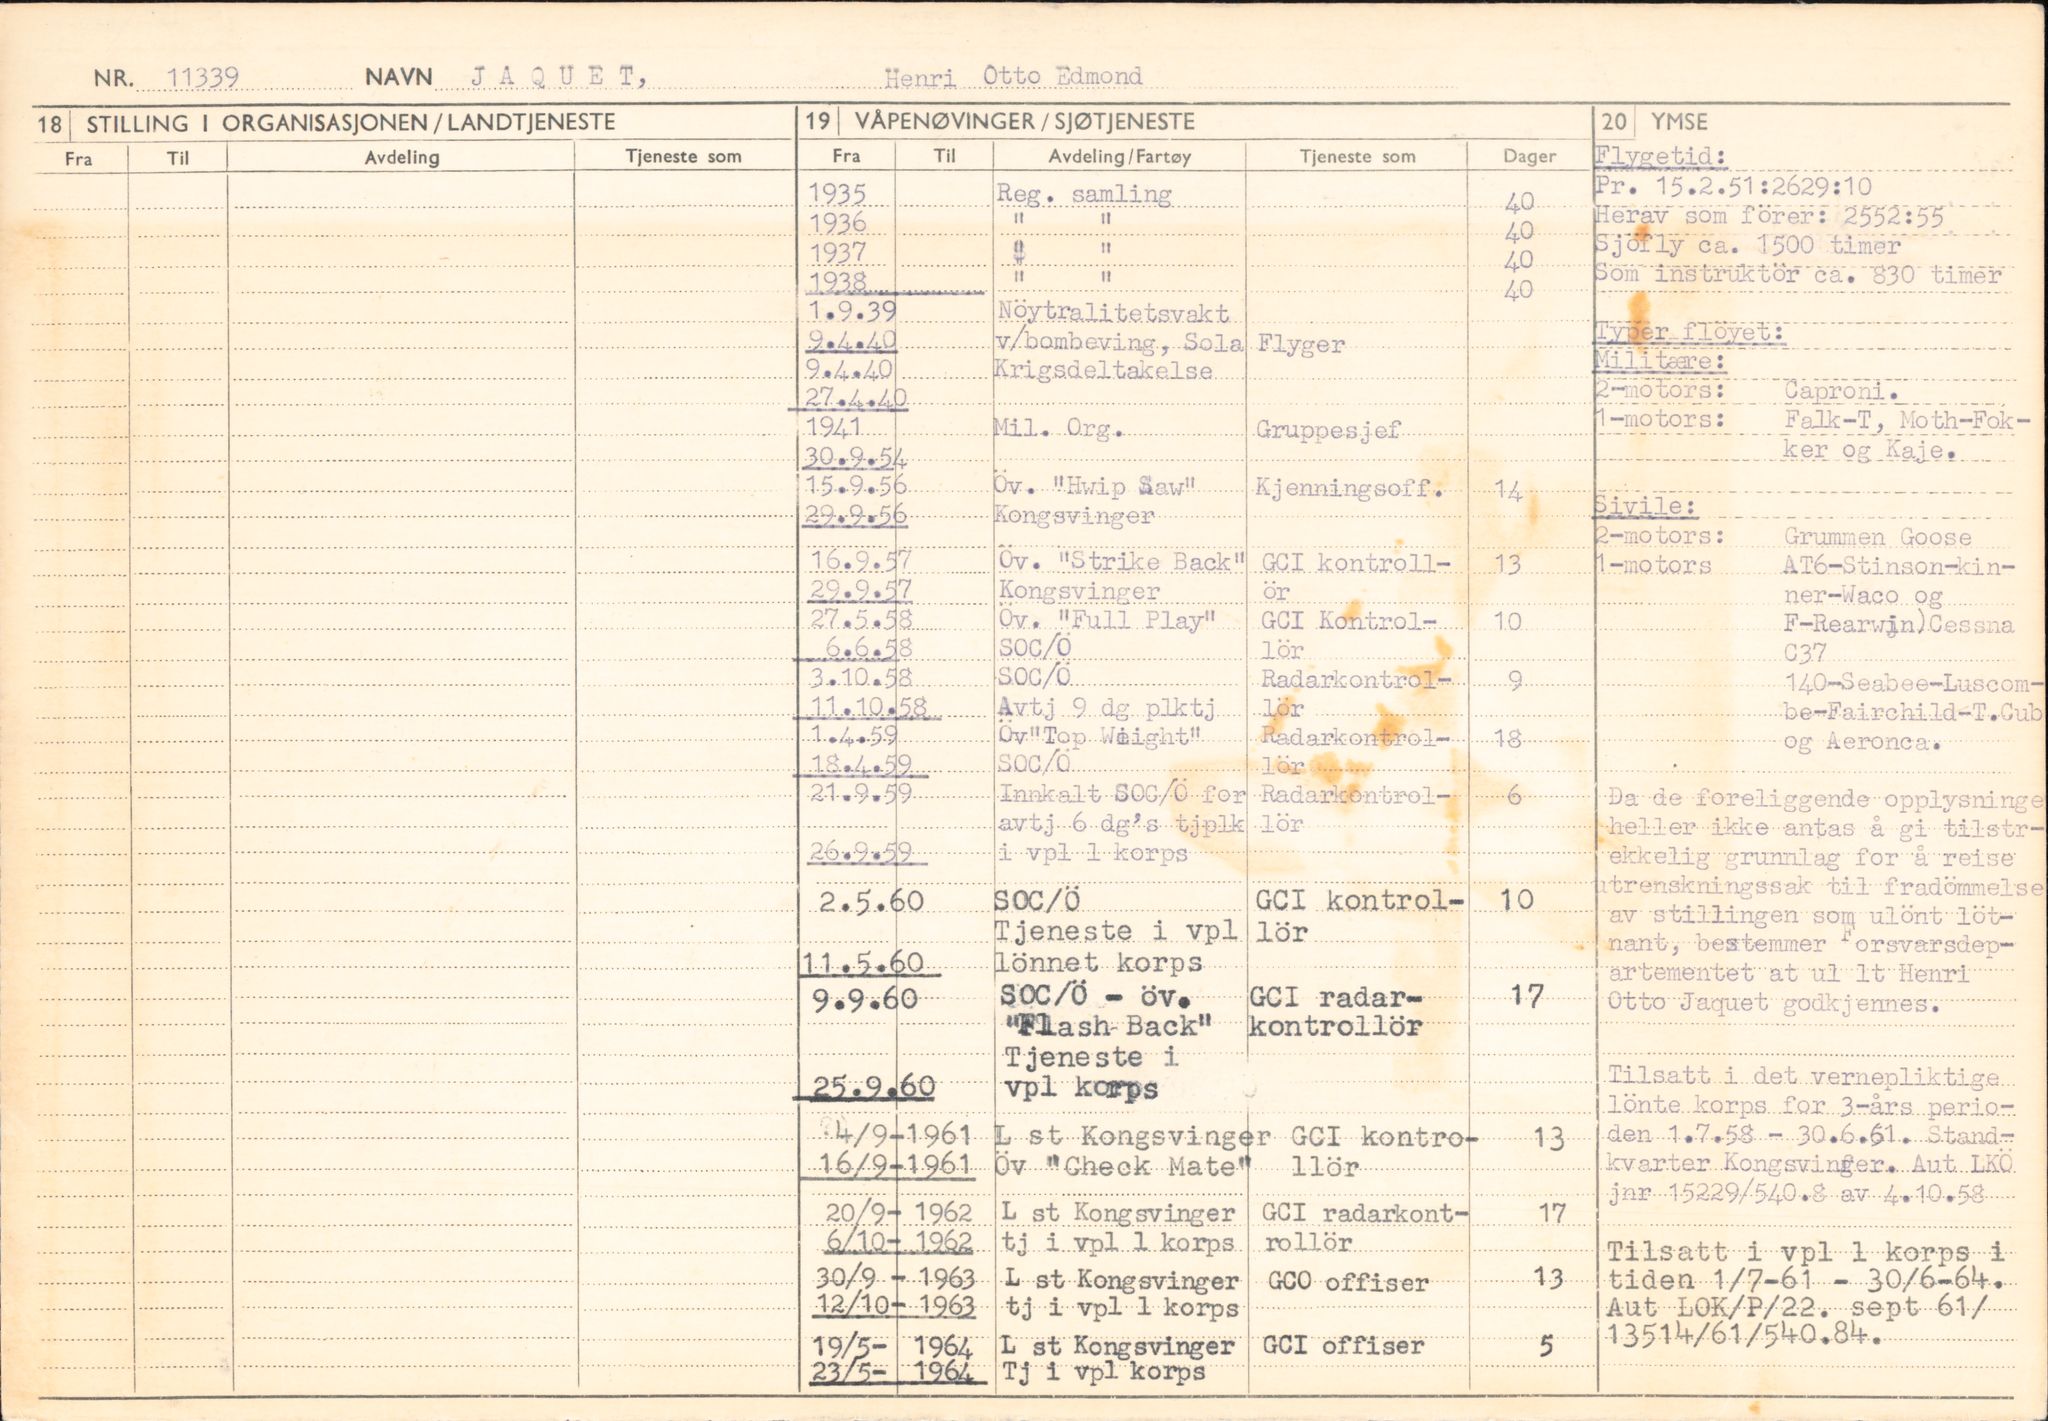 NR. 11339 NAVN J A Q U E T, Henri Otto Edmond
18 STILLING I ORGANISASJONEN/LANDTJENESTE
Fra Til Avdeling Tjeneste som
19 VÅPENØVINGER/SJØTJENESTE
Fra Til Avdeling/Fartøy Tjeneste som Dager
1935 Reg. samling 40
1936 " " 40
1937 " " 40
1938 " " 40
1.9.39 Nöytralitetsvakt
9.4.40 v/bombeving, Sola Flyger
9.4.40 Krigsdeltakelse
27.4.40
1941 Mil. Org. Gruppesjef
30.9.54
15.9.56 Öv. "Hwip Saw" Kjenningsoff. 14
29.9.56 Kongsvinger
16.9.57 Öv. "Strike Back" GCI kontroll- 13
29.9.57 Kongsvinger ör
27.5.58 Öv. "Full Play" GCI Kontrol- 10
6.6.58 SOC/Ö lör
3.10.58 SOC/Ö Radarkontrol- 9
11.10.58 Avtj 9 dg plktj lör
1.4.59 Öv"Top Weight" Radarkontrol- 18
18.4.59 SOC/Ö lör
21.9.59 Innkalt SOC/Ö for Radarkontrol- 6
avtj 6 dg's tjplk lör
26.9.59 i vpl l korps
2.5.60 SOC/Ö GCI kontrol- 10
Tjeneste i vpl lör
11.5.60 lönnet korps
9.9.60 SOC/Ö - öv. GCI radar- 17
"Flash Back" kontrollör
Tjeneste i
25.9.60 vpl korps
4/9-1961 L st Kongsvinger GCI kontro- 13
16/9-1961 Öv "Check Mate" llör
20/9- 1962 L st Kongsvinger GCI radarkont- 17
6/10- 1962 tj i vpl l korps rollör
30/9 - 1963 L st Kongsvinger GCO offiser 13
12/10- 1963 tj i vpl l korps
19/5- 1964 L st Kongsvinger GCI offiser 5
23/5- 1964 Tj i vpl korps
20 YMSE
Flygetid:
Pr. 15.2.51:2629:10
Herav som förer: 2552:55
Sjöfly ca. 1500 timer
Som instruktör ca. 830 timer
Typer flöyet:
Militære:
2-motors: Caproni.
1-motors: Falk-T, Moth-Fok-
ker og Kaje.
Sivile:
2-motors: Grummen Goose
1-motors AT6-Stinson-kin-
ner-Waco og
F-Rearwin)Cessna
C37
140-Seabee-Luscom-
be-Fairchild-T.Cub
og Aeronca.
Da de foreliggende opplysninge
heller ikke antas å gi tilstr-
ekkelig grunnlag for å reise
utrenskningssak til fradömmelse
av stillingen som ulönt löt-
nant, bestemmer Forsvarsdep-
artementet at ul lt Henri
Otto Jaquet godkjennes.
Tilsatt i det vernepliktige
lönte korps for 3-års perio-
den 1.7.58 - 30.6.61. Stand-
kvarter Kongsvinger. Aut LKÖ
jnr 15229/540.8 av 4.10.58
Tilsatt i vpl l korps i
tiden 1/7-61 - 30/6-64.
Aut LOK/P/22. sept 61/
13514/61/540.84.